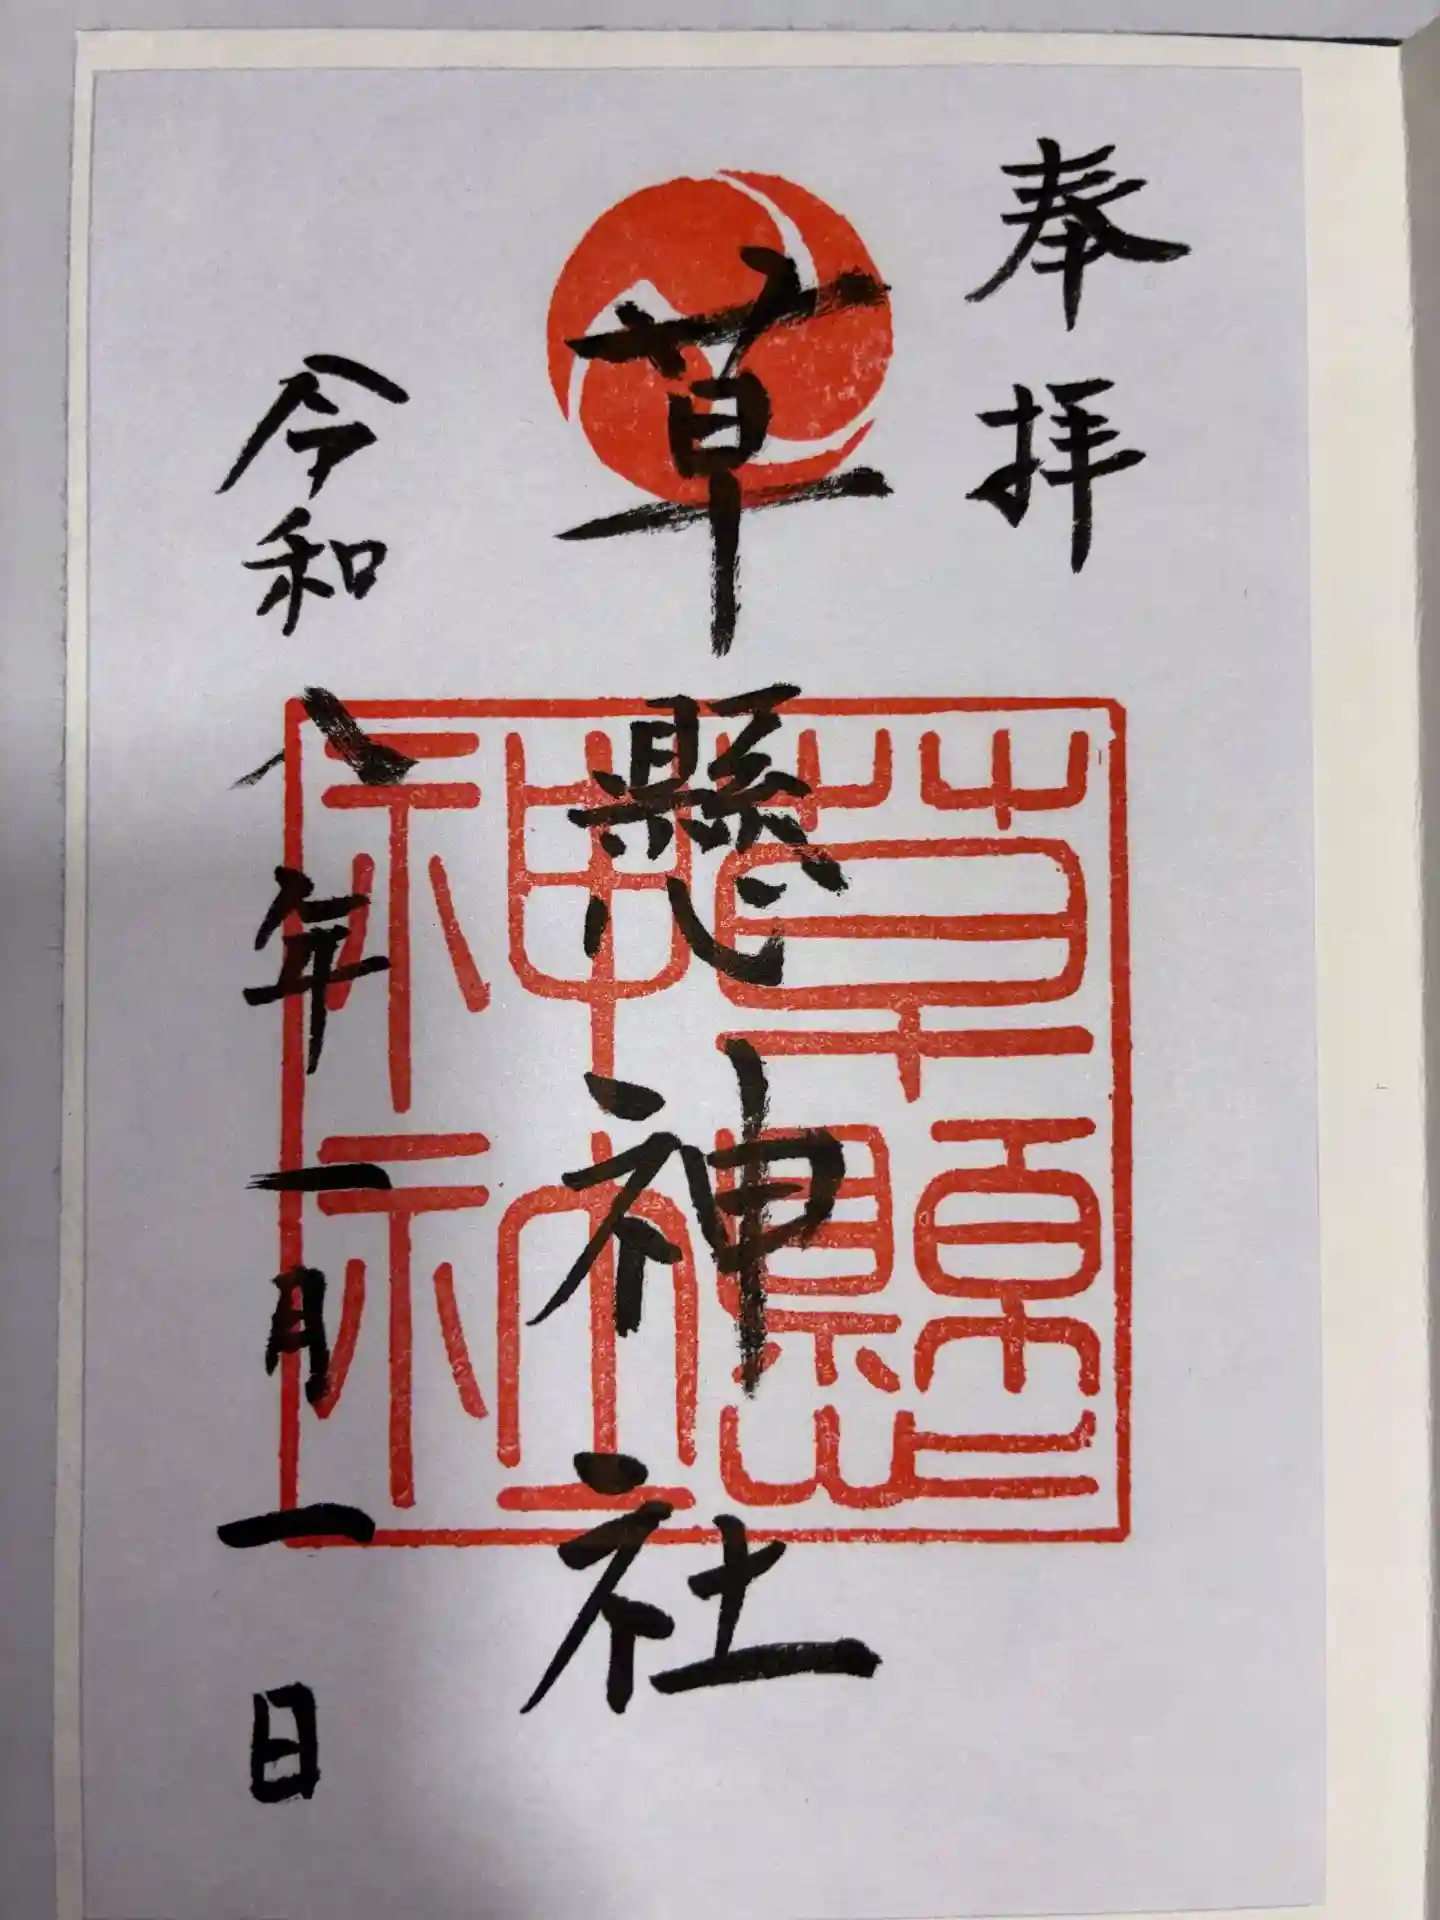 奉拝
草懸神社
草懸神社
令和八年一月一日